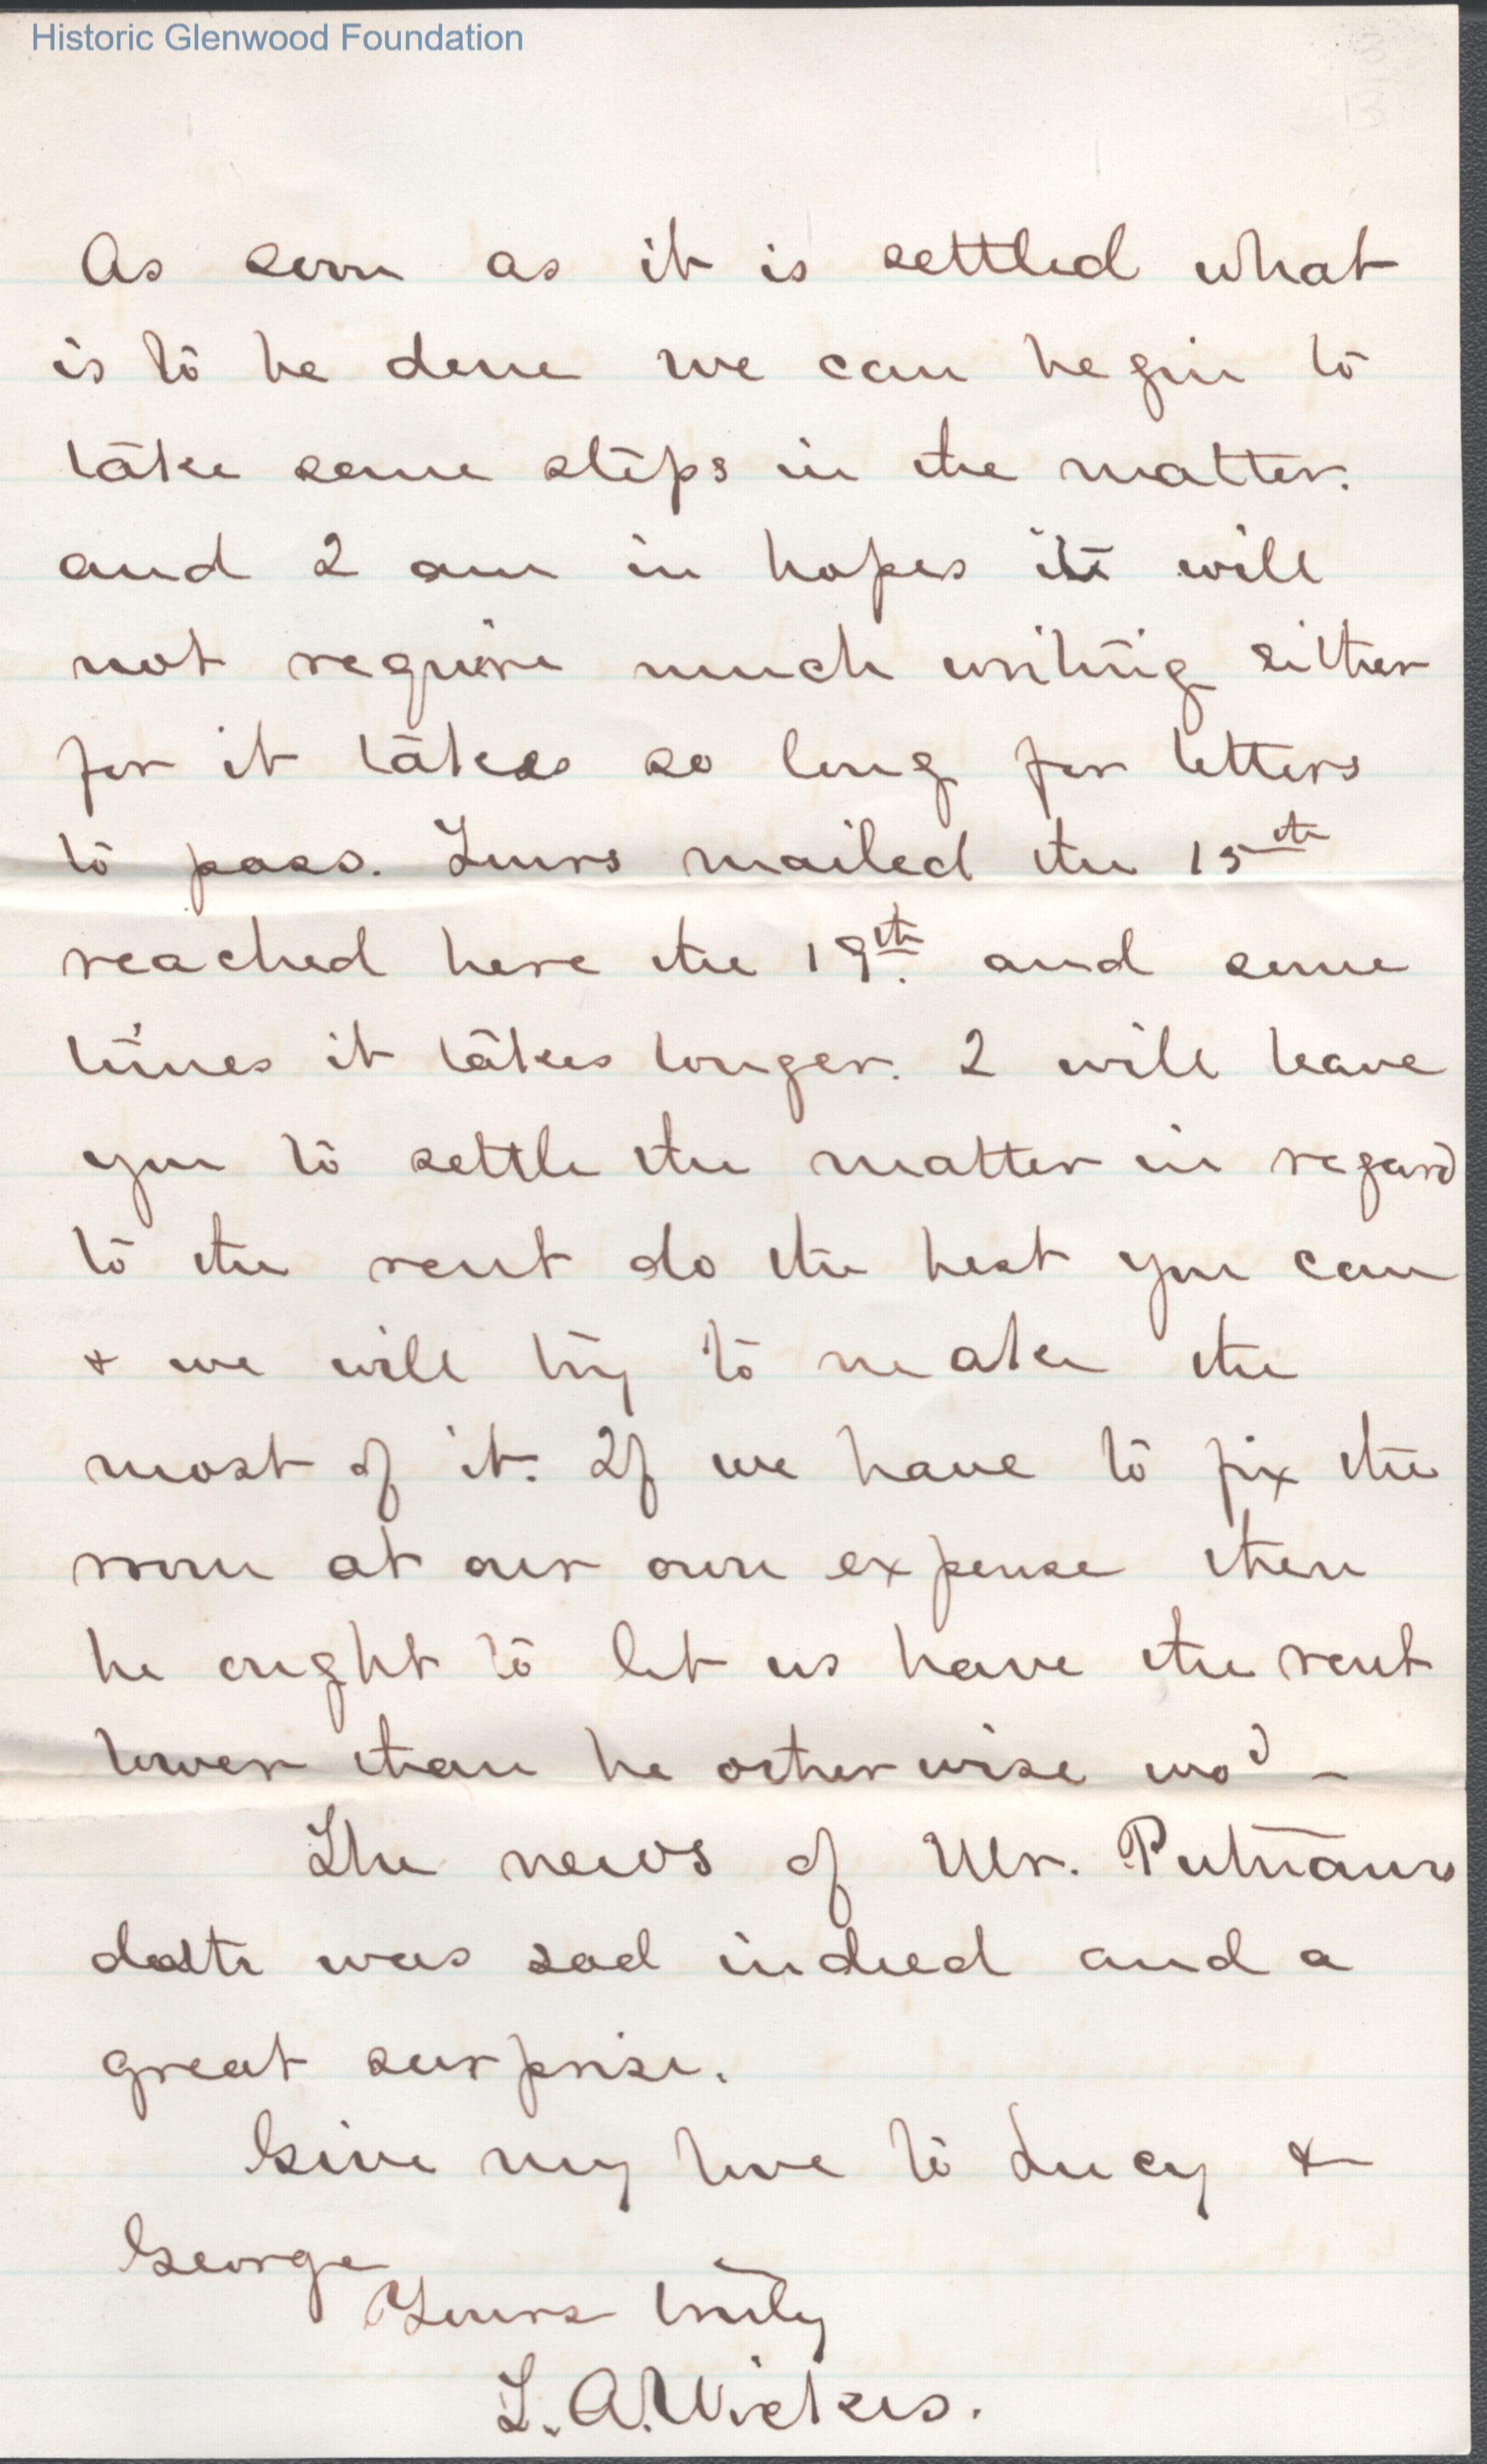 Historic Glenwood Foundation
As soon as it is settled what
is to be done we can begin to
take some steps in the matter.
and I am in hopes it will
not require much writing either
for it takes so long for letters
to pass. Yours mailed the 15th
reached here the 19th. and some
times it takes longer. I will leave
you to settle the matter in regard
to the rent do the best you can
& we will try to make the
most of it. If we have to fix the
room at our own expense then
he ought to let us have the rent
lower than he otherwise wod –
The news of Mr. Putnams
death was sad indeed and a
great surprise.
Give my love to Lucy &
George
Yours truly
L. A. Wickes.